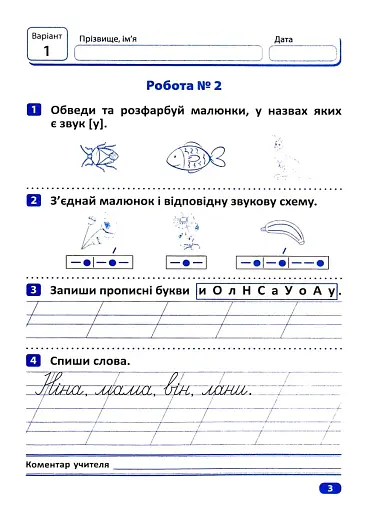 Варіант
1
Прізвище, ім'я
Дата
Робота № 2
1 Обведи та розфарбуй малюнки, у назвах яких
є звук [у].
2 З'єднай малюнок і відповідну звукову схему.
3 Запиши прописні букви и О л Н С а У о А у.
4 Спиши слова.
Ніна, мама, він, лани.
Коментар учителя
3